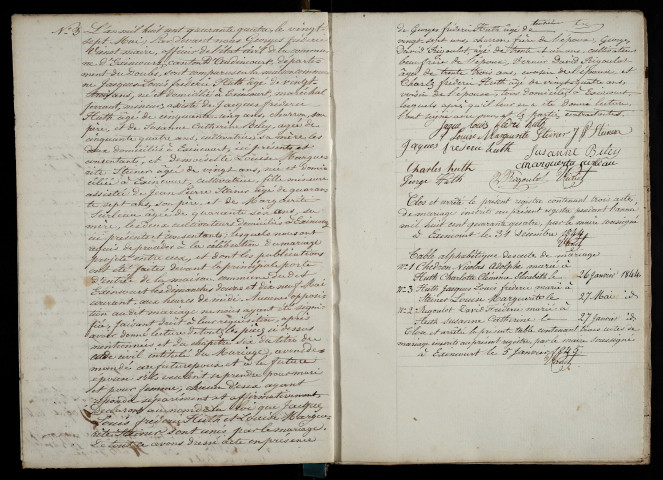 N° 3 L'an mil huit cent quarante quatre, le vingt
sept Mai, par devant nous Georges Frédéric
maire, officier de l'état civil de la commune
d'Exincourt, canton d'Audincourt, département
du Doubs, sont comparus le
Jacques Louis frédéric Huth âgé de vingt
ans, né et domicilié à Exincourt, maréchal
ferrant, mineur, assisté de Jacques frédéric
Huth âgé de cinquante cinq ans, charron, son
père, et de Susanne Catherine Biley, âgée de
cinquante quatre ans, cultivatrice, sa mère les
deux domiciliés à Exincourt, ici présents et
consentants, et demoiselle Louise Margue
rite Steiner âgée de vingt ans, née et domi
ciliée à Exincourt, cultivatrice, fille mineure
assistée de Jean Pierre Steiner âgé de quaran
te sept ans, son père et de Marguerite
Surleau âgée de quarante six ans, sa
mère, les deux cultivateurs domiciliés à Exincourt
ici présents et consentants; lesquels nous ont
requis de procéder à la célébration du mariage
projeté entre eux, et dont les publications
ont été faites devant la principale porte
d'entrée de la maison commune de
Exincourt les dimanches douze et dix neuf Mai
courant, aux heures de midi. Aucune opposi
tion au dit mariage ne nous ayant été signi
fiée, faisant droit à leur réquisition, après
avoir donné lecture de toutes les pièces ci dessus
mentionnées et du chapitre six du titre du
code civil intitulé du Mariage, avons de
mandé au futur époux et à la future
épouse s'ils veulent se prendre pour mari
et pour femme, chacun d'eux ayant
répondu séparément et affirmativement,
déclarons au nom de la loi que Jacques
Louis frédéric Huth et Louise Margue
rite Steiner sont unis par le mariage.
De tout ce avons dressé acte en présence
de Georges frédéric Huth âgé de
vingt sept ans, charron, frère de l'époux, George
David Rigoulot, âgé de trente et un ans, cultivateur
beau frère de l'époux,
âgé de trente trois ans, cousin de l'épouse et
Charles frédéric Huth âgé de vingt quatre ans,
cousin de l'époux, tous domiciliés à Exincourt,
lesquels après qu'il leur en a été donné lecture
l'ont signé avec nous et les parties contractantes.
Jaque Louis Fréderi huth
Louise Marguerite Steiner J P Steiner
Jaques frederic huth
Susanne Biley
Marguerite surleau
Charles huth
George Huth
Rigoulot
Clos et arrêté le présent registre contenant trois actes
de mariage inscrit au présent registre pendant l'année
mil huit cent quarante quatre, par le maire soussigné
à Exincourt le 31 décembre 1844
Table alphabétique des actes de mariage
N° 1 Chedron Nicolas Adolphe marié à
Huth Charlotte Clémence Elisabeth le 26 janvier 1844
N° 3 Huth Jaques Louis frédéric marié à
Steiner Louise Marguerite le 27 Mai id
N° 2 Rigoulot David frédéric marié à
Huth Susanne Catherine le 27 janvier id
Clos et arrêté la présente table contenant trois actes de
mariage inscrits au présent registre par le maire soussigné
à Exincourt le 5 Janvier 1845